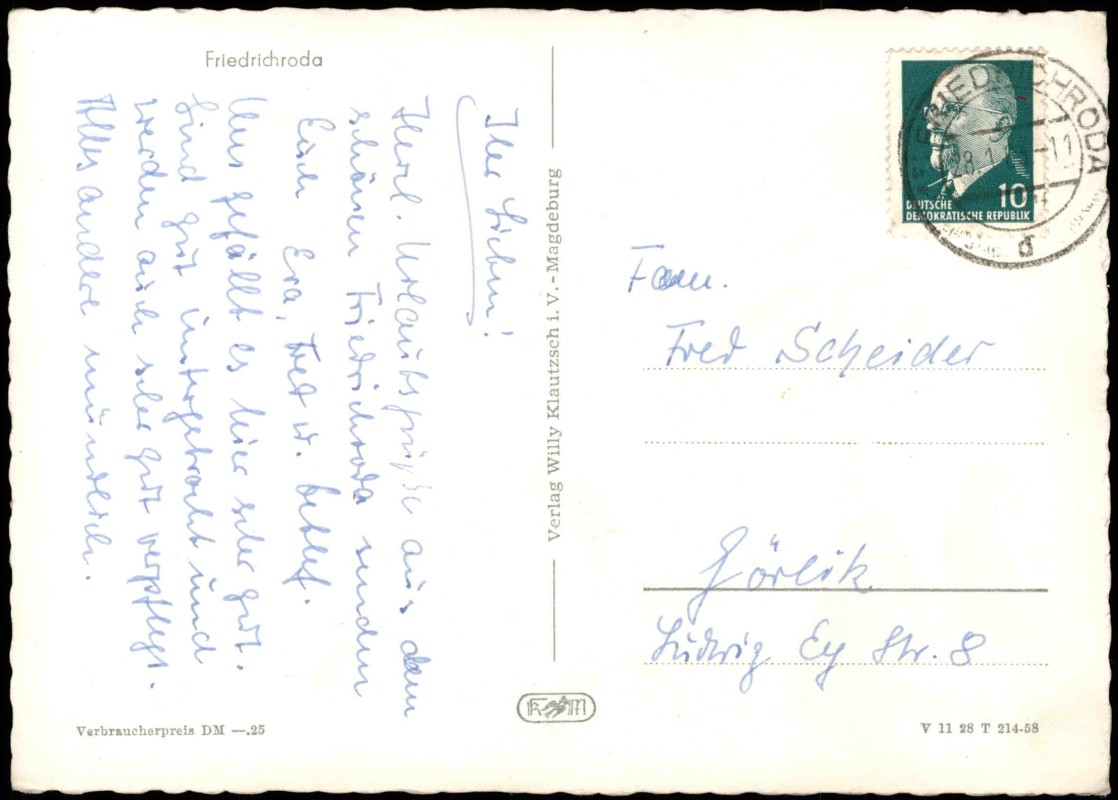 Friedrichroda
Ihr Lieben!
Herzl. Urlaubsgrüße aus dem
schönen Friedrichroda senden
Euch Eva, Fred u. Detlef.
Uns gefällt es hier sehr gut.
Sind gut untergebracht und
werden auch sehr gut verpflegt.
Alles andere mündlich.
Verbraucherpreis DM —.25
Verlag Willy Klautzsch i. V. - Magdeburg
K M
FRIEDRICHRODA
28.1
-11
d
10
DEUTSCHE
DEMOKRATISCHE REPUBLIK
Fam.
Fred Scheider
Görlitz
Ludwig Ey Str. 8
V 11 28 T 214-58